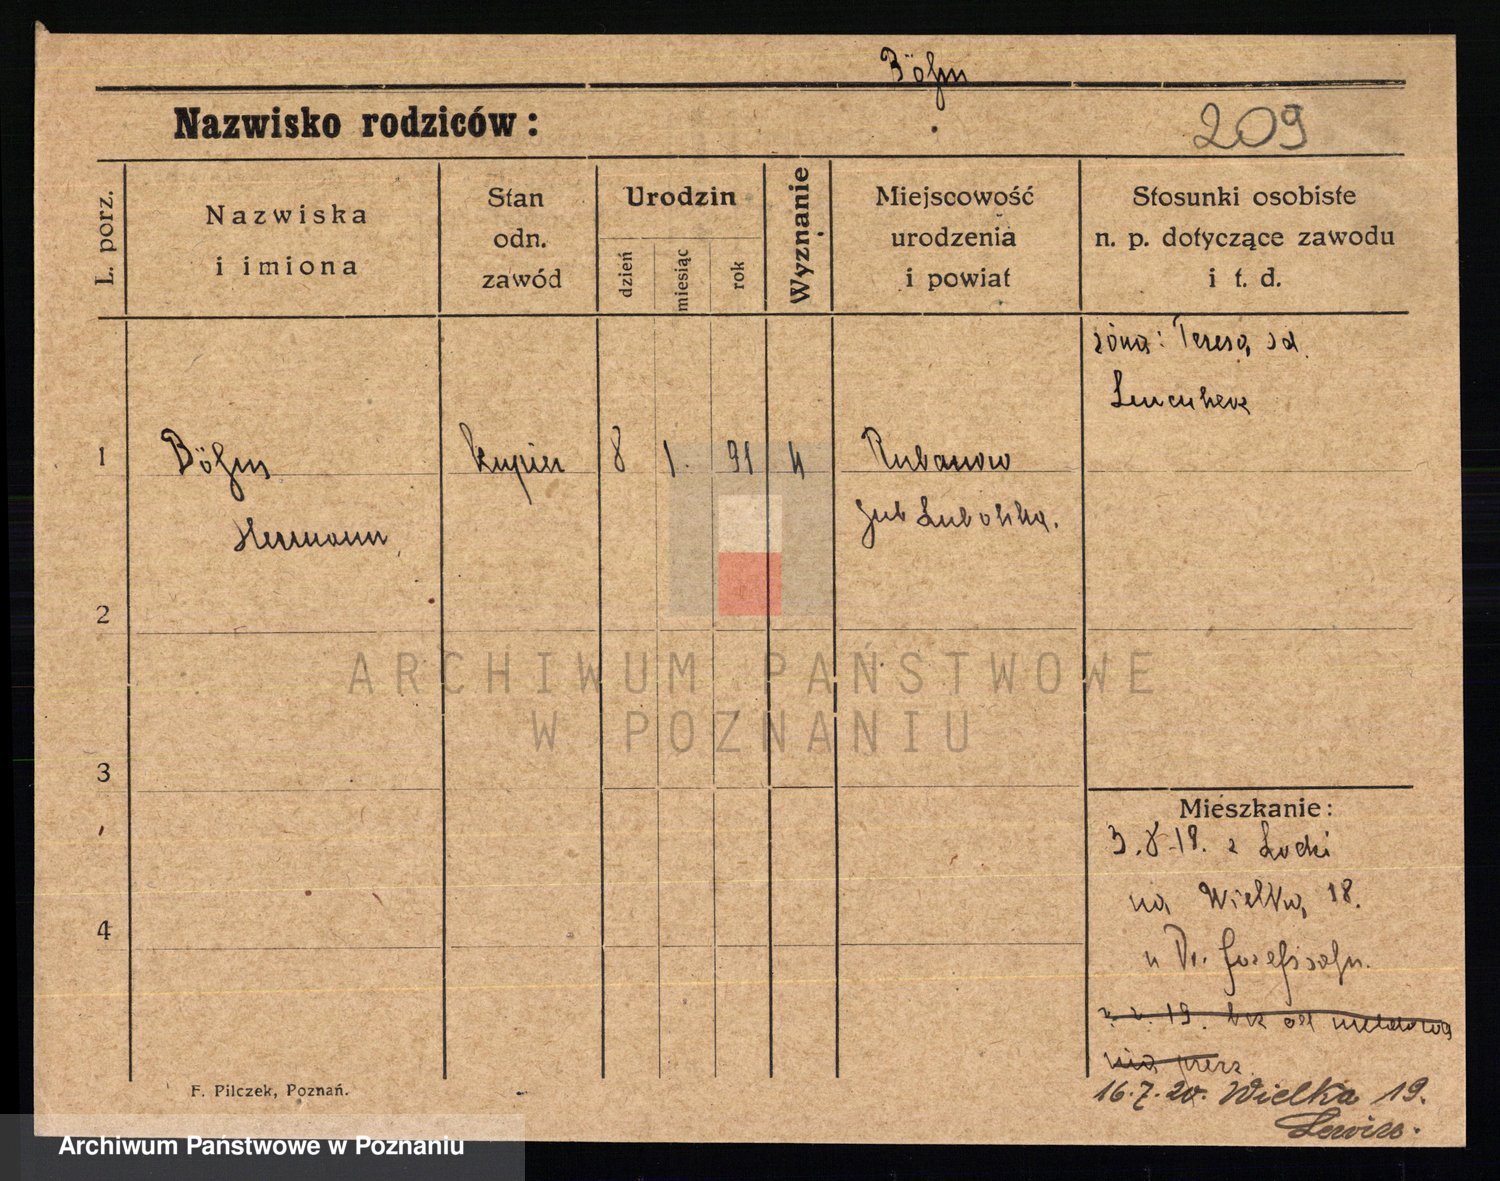 Böhm
Nazwisko rodziców:
209
L. porz.
Nazwiska
i imiona
Stan
odn.
zawód
Urodzin
dzień
miesiąc
rok
Wyznanie
Miejscowość
urodzenia
i powiat
Stosunki osobiste
n. p. dotyczące zawodu
i t. d.
żona: Teresa
1
Böhm
kupiec
8
1.
91
Hermann
gub Lubelska.
2
ARCHIWUM PAŃSTWOWE
W POZNANIU
3
Mieszkanie:
3.8.18. z Łodzi
na Wielka 18.
4
u Dr. Josefsohn.
19. bez odmeldowa
nia
F. Pilczek, Poznań.
16.7.20. Wielka 19.
Archiwum Państwowe w Poznaniu